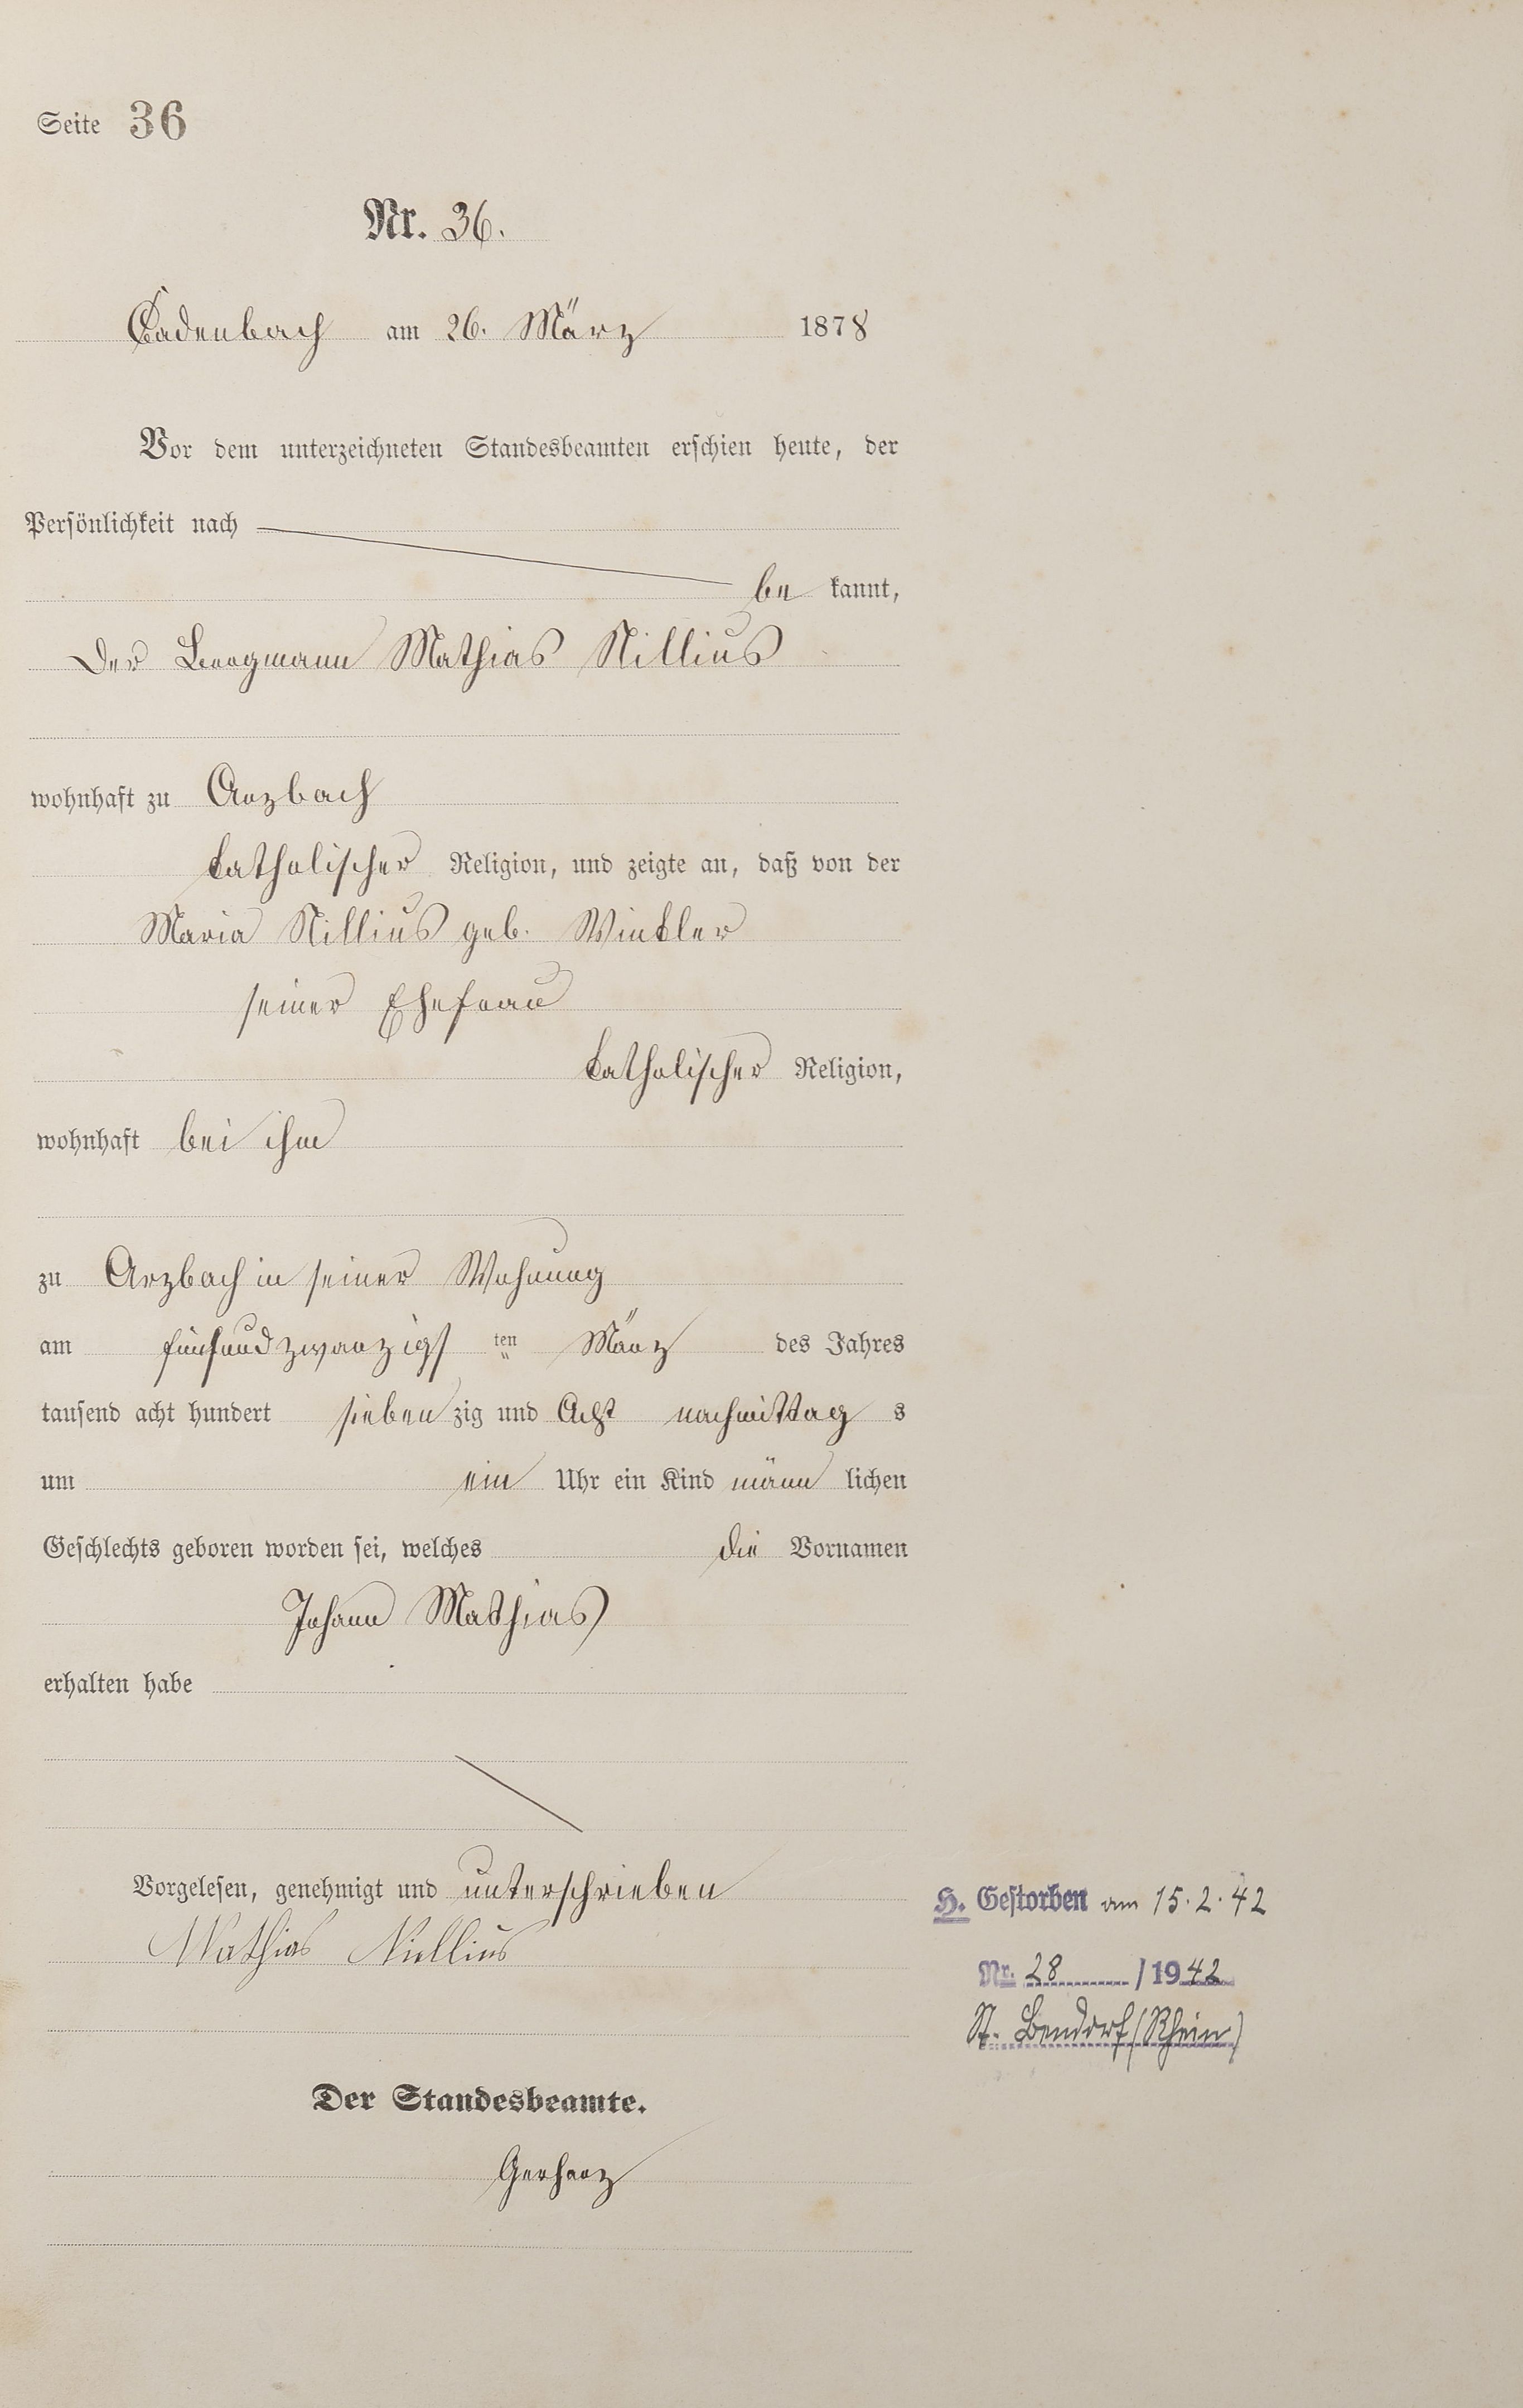 Seite 36
Nr. 36.
Cadenbach am 26. März 1878
Vor dem unterzeichneten Standesbeamten erschien heute, der
Persönlichkeit nach
be kannt,
der Bergmann Mathias Nillius
wohnhaft zu Arzbach
katholischer Religion, und zeigte an, daß von der
Maria Nillius geb. Winkler
seiner Ehefrau
katholischer Religion,
wohnhaft bei ihm
zu Arzbach in seiner Wohnung
am fünfundzwanzigs ten März des Jahres
tausend acht hundert sieben zig und Acht nachmittag s
um ein Uhr ein Kind männ lichen
Geschlechts geboren worden sei, welches die Vornamen
Johann Mathias
erhalten habe
Vorgelesen, genehmigt und unterschrieben
Mathias Niellius
Der Standesbeamte.
Gerharz
H. Gestorben am 15.2.42
Nr. 28 /1942
St. Bendorf (Rhein)